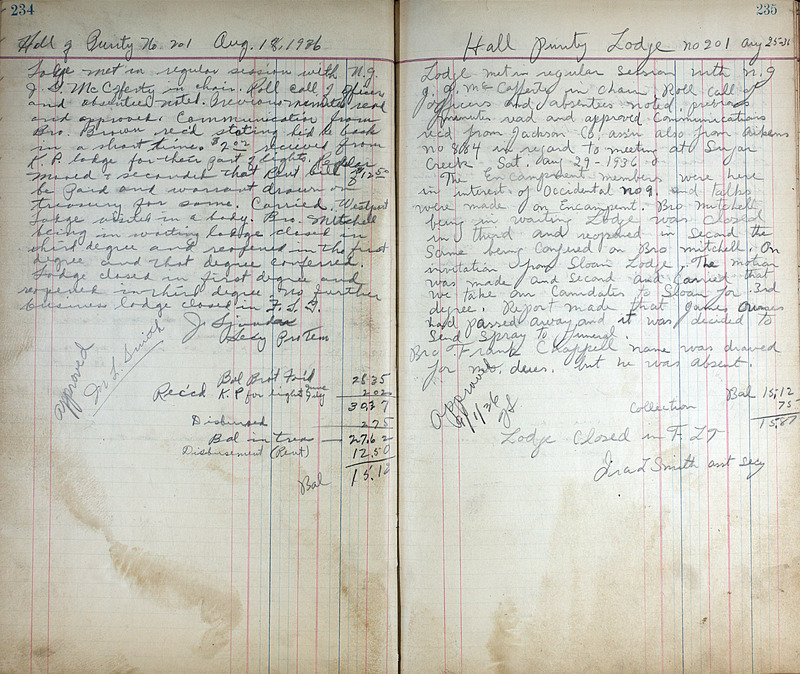 234
Hall of Purity No. 201 Aug. 18, 1936
Lodge met in regular session with N.G.
J. G. McCafferty in chair. Roll call of officers
and absentees noted. Previous minutes read
and approved. Communication from
Bro. Brown rec'd stating he'd be back
in a short time. $2.02 received from
K.P. lodge for their part of lights. Regular
moved & seconded that Rent bill of $12.50
be Paid and warrant drawn on
treasury for same. Carried. Westport
lodge visited in a body. Bro. Mitchell
being in waiting lodge closed in
third degree and reopened in the first
degree and that degree conferred.
Lodge closed in first degree and
reopened in third degree no further
business lodge closed in F. L. T.
J.
Secy Protem
approved
Ira L. Smith
Bal Brot F'w'd 28.35
Rec'd K.P for lights June July 2.02
30.37
Disbursed 2.75
Bal in trea — 27.62
Disbursement (Rent) 12.50
Bal 15.12
235
Hall Purity Lodge no 201 Aug 25-36
Lodge met in regular session with N.G
J. G. McCafferty in chair. Roll call of
officers and absentees noted. previous
minutes read and approved. Communications
recd from Jackson Co. ass'n also from Aikens
no 884 in regard to meeting at Sugar
Creek. Sat. Aug 29-1936
The Encampment members were here
in interest of Occidental no 9. and talks
were made on Encampment. Bro Mitchell
being in waiting Lodge was closed
in third and reopened in second the
same being confered on Bro mitchell. On
invitation from Sloan Lodge. The motion
was made and second and carried that
we take our Canidates to Sloan for 3rd
degree. Report made that James
had passed away and it was decided to
send spray to funeral.
Bro Frank Chappell name was drawed
for mo, dues. but he was absent.
approved
9/1/36
Bal 15.12
Collection 75
15.87
Lodge Closed in F L T
Ira L Smith asst secy